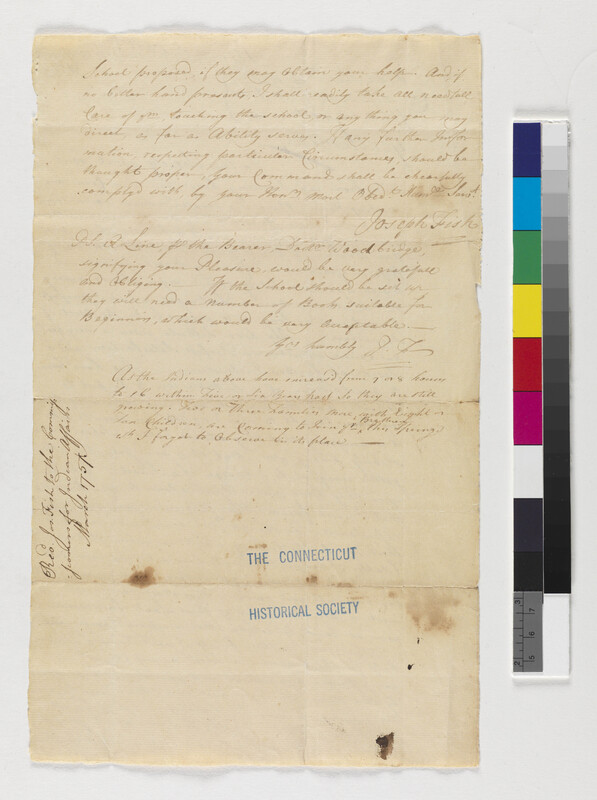 School proposed, if they may obtain your help. And if
no better hand presents, I shall readily take all needfull
Care of ym, touching the school, or any thing you may
direct, as far as Ability serves. If any further Infor-
mation, respecting particular Circumstances, should be
thought proper, your Commands shall be chearfully
complyd with by your Honrs most Obedt Humbe Servt
Joseph Fish
P.S. A Line pr the Bearer, Doctr Woodbridge,
signifying your Pleasure, would be very gratefull
and obliging. — If the School should be set up
they will need a number of Books suitable for
Beginners, which would be very acceptable. —
Yrs humbly J. F
As the Indians above have increased from 7 or 8 houses
to 16 within Four or Six Years past So they are still
growing. Two or Three Families more, with Eight or
ten Children, are Coming to Join yr Brethren, this Spring
wh I forgot to Observe in its place —
Revd Jos Fish to the Commis-
sioners for Indian Affairs
March 1757
THE CONNECTICUT
HISTORICAL SOCIETY
2 3
5 6 7